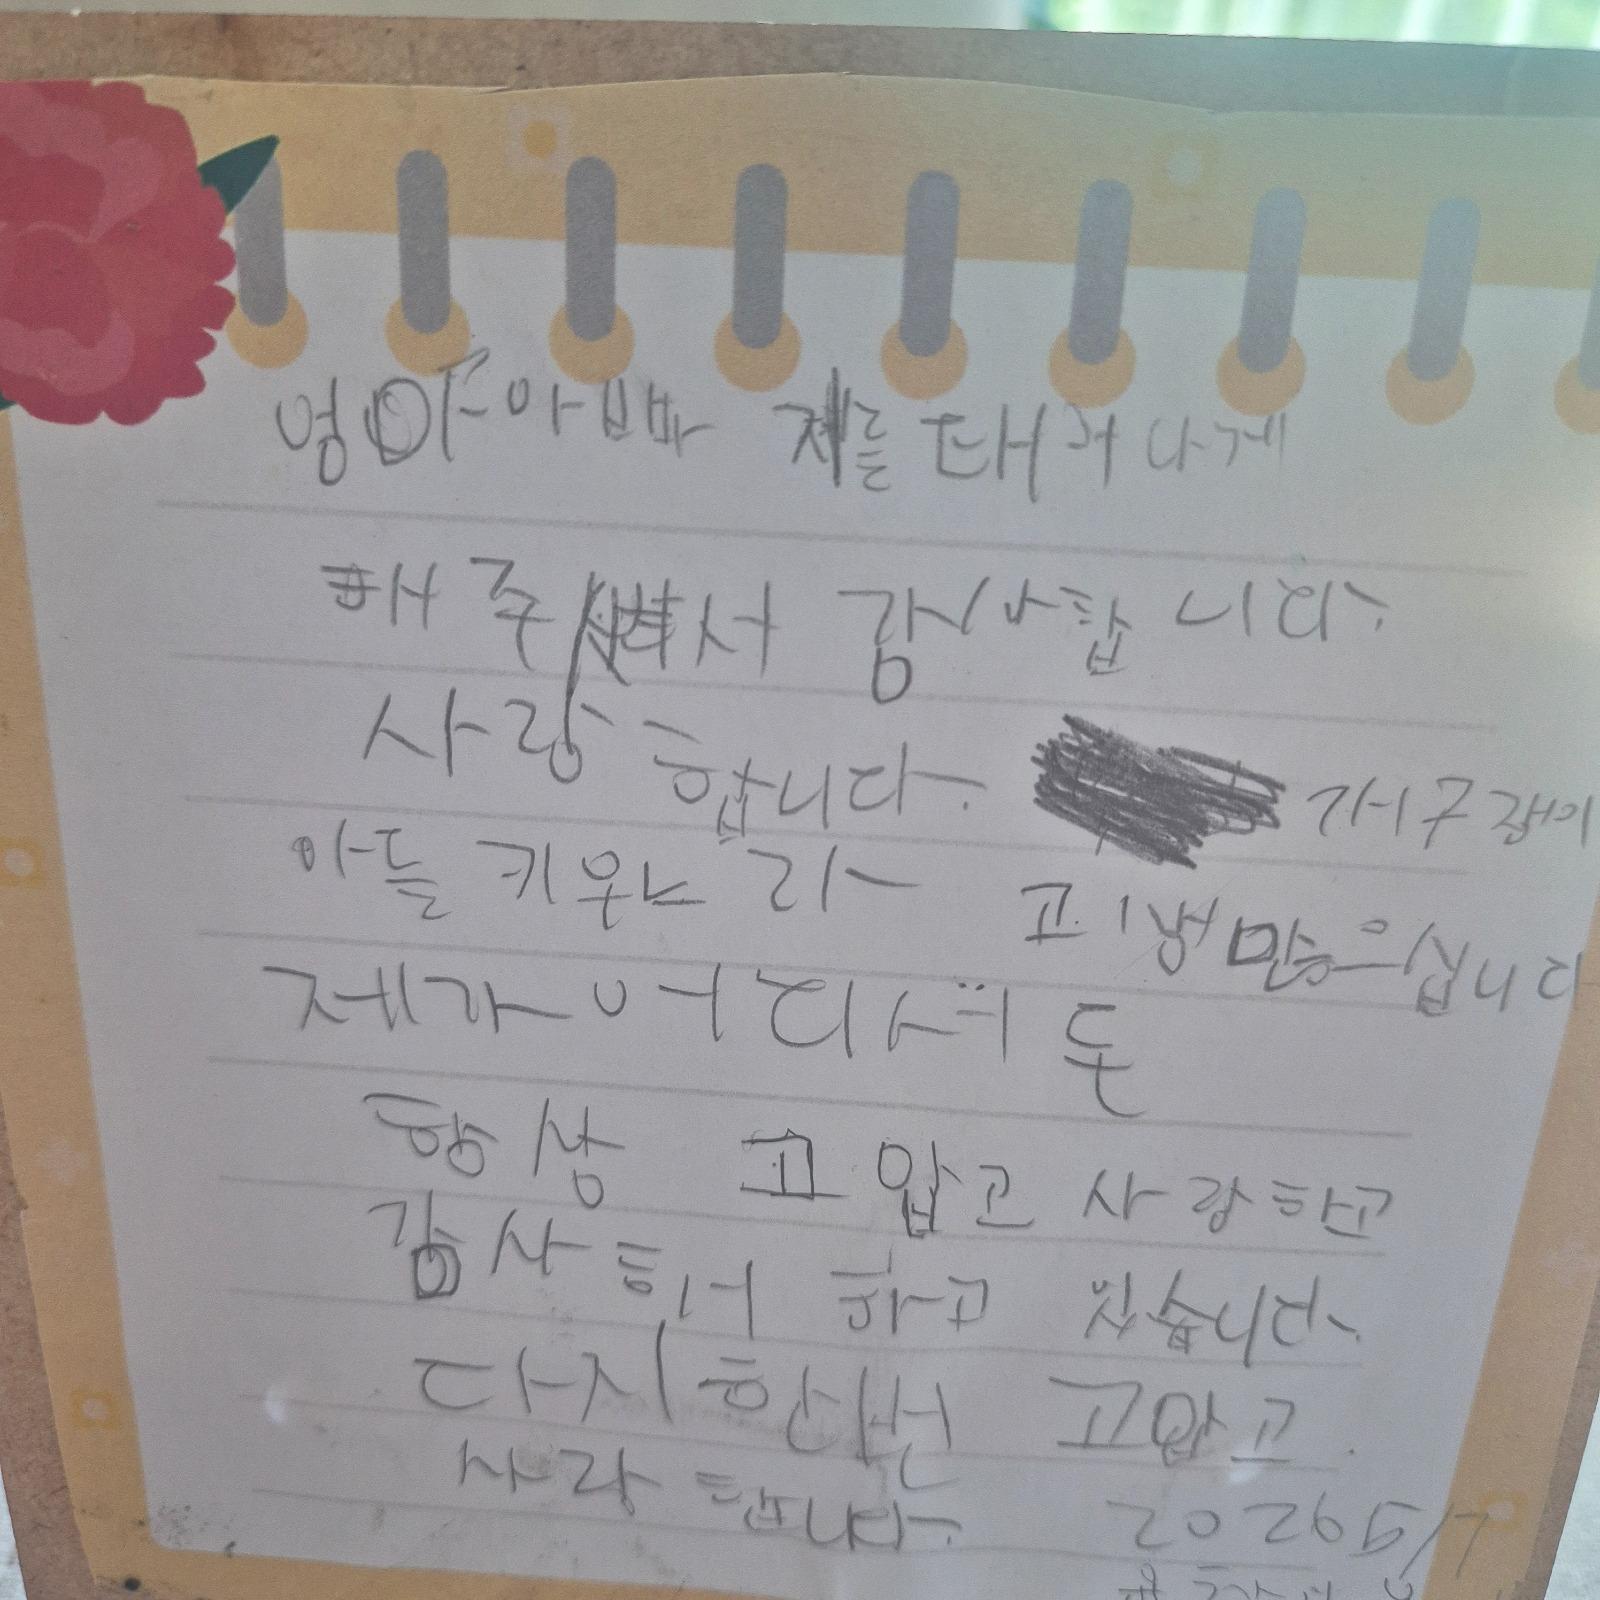 엄마아빠 저를 태어나게
해 주셔서 감사합니다.
사랑합니다. 개구쟁이
아들 키우느라 고생많으십니다
제가 어디서든
항상 고맙고 사랑하고
감사히 하고 싶습니다.
다시한번 고맙고
사랑합니다.